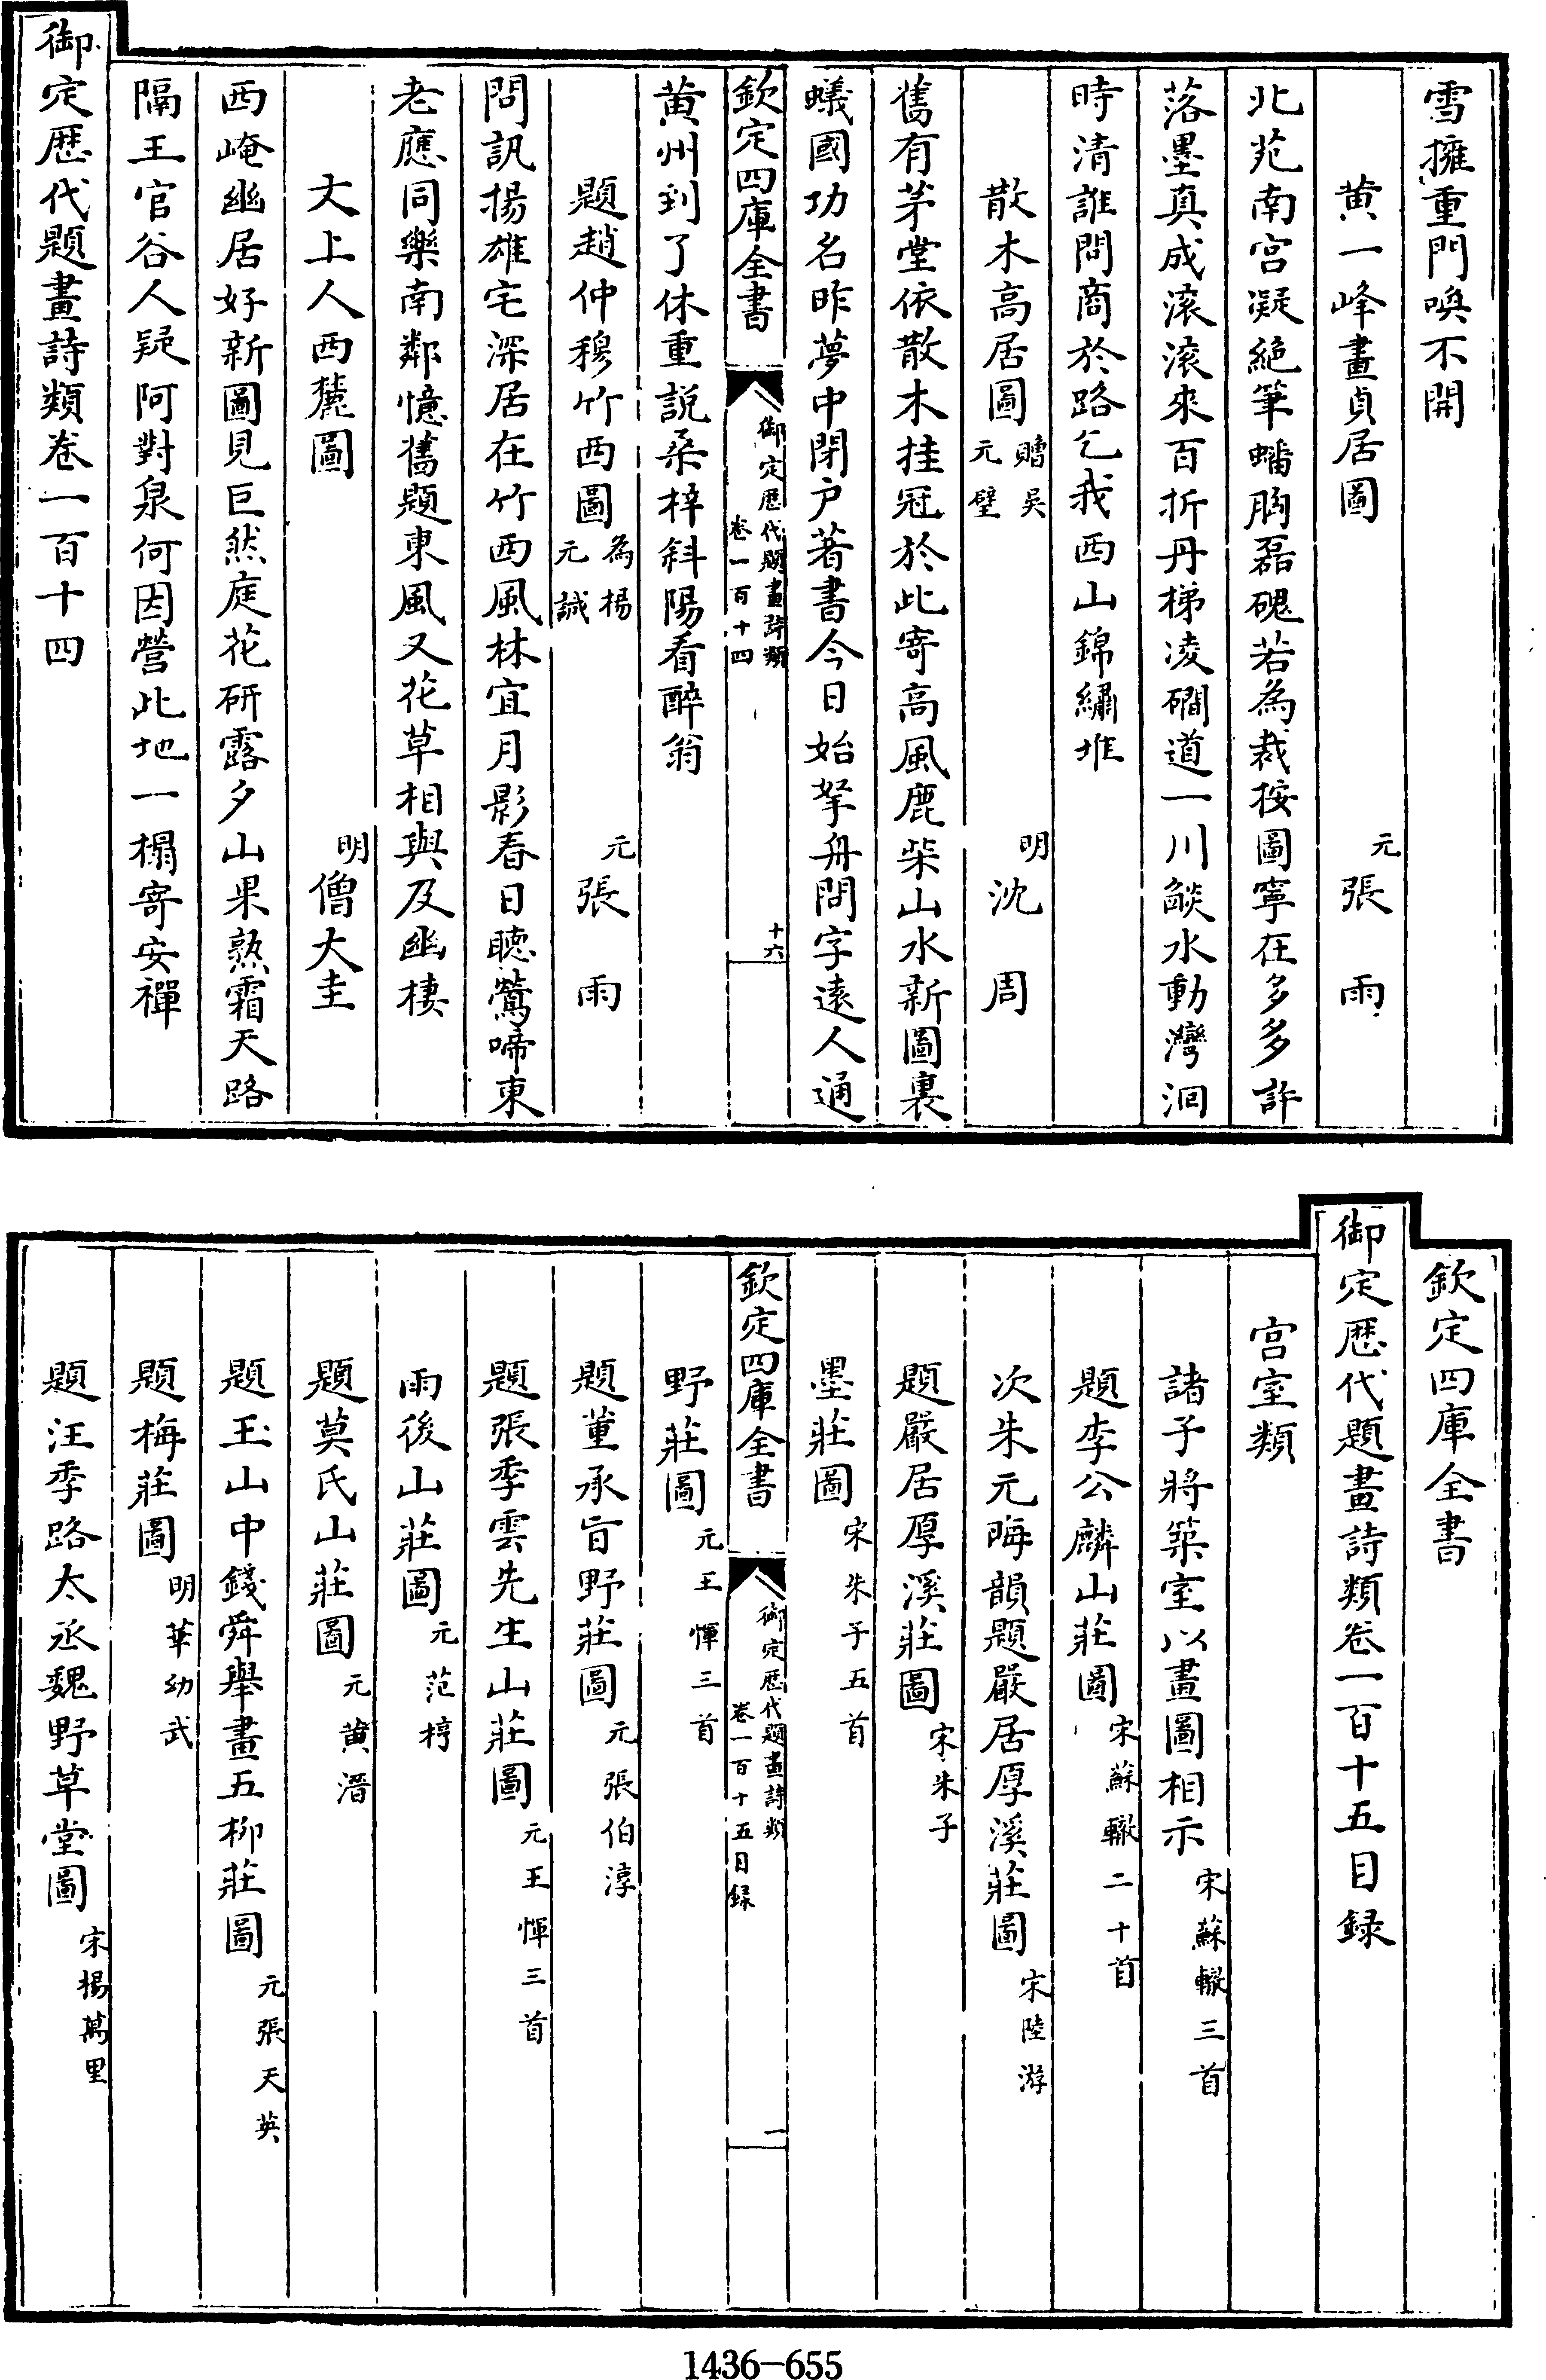 雪擁重門喚不開
黄一峰畫貞居圖 元張雨
北苑南宫凝絶筆蟠胸磊磈若為裁按圖寧在多多許
落墨真成滚滚來百折丹梯凌磵道一川燄水動灣洄
時清誰問商於路乞我西山錦繡堆
散木高居圖 贈吳元壁 明沈周
舊有茅堂依散木挂冠於此寄高風鹿柴山水新圖裏
蟻國功名昨夢中閉户著書今日始拏舟問字遠人通
欽定四庫全書 御定歴代題畫詩類 卷一百十四 十六
黄州到了休重説桑梓斜陽看醉翁
題趙仲穆竹西圖 為楊元誠 元張雨
問訊揚雄宅深居在竹西風林宜月影春日聽鶯啼東
老應同樂南鄰憶舊題東風又花草相與及幽棲
大上人西麓圖 明僧大圭
西崦幽居好新圖見巨然庭花研露夕山果熟霜天路
隔王官谷人疑阿對泉何因營此地一榻寄安禪
御定歴代題畫詩類卷一百十四
欽定四庫全書
御定歴代題畫詩類卷一百十五目録
宫室類
諸子將築室以畫圖相示 宋蘇轍三首
題李公麟山莊圖 宋蘇轍二十首
次朱元晦韻題嚴居厚溪莊圖 宋陸游
題嚴居厚溪莊圖 宋朱子
墨莊圖 宋朱子五首
欽定四庫全書 御定歴代題畫詩類 卷一百十五目録 一
野莊圖 元王惲三首
題董承旨野莊圖 元張伯淳
題張季雲先生山莊圖 元王惲三首
雨後山莊圖 元范梈
題莫氏山莊圖 元黄溍
題玉山中錢舜舉畫五柳莊圖 元張天英
題梅莊圖 明華幼武
題汪季路太丞魏野草堂圖 宋楊萬里
1436-655